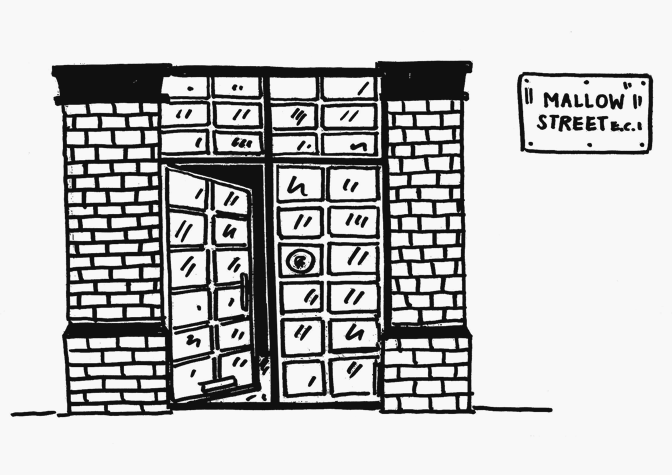 MALLOW
STREET E.C.1